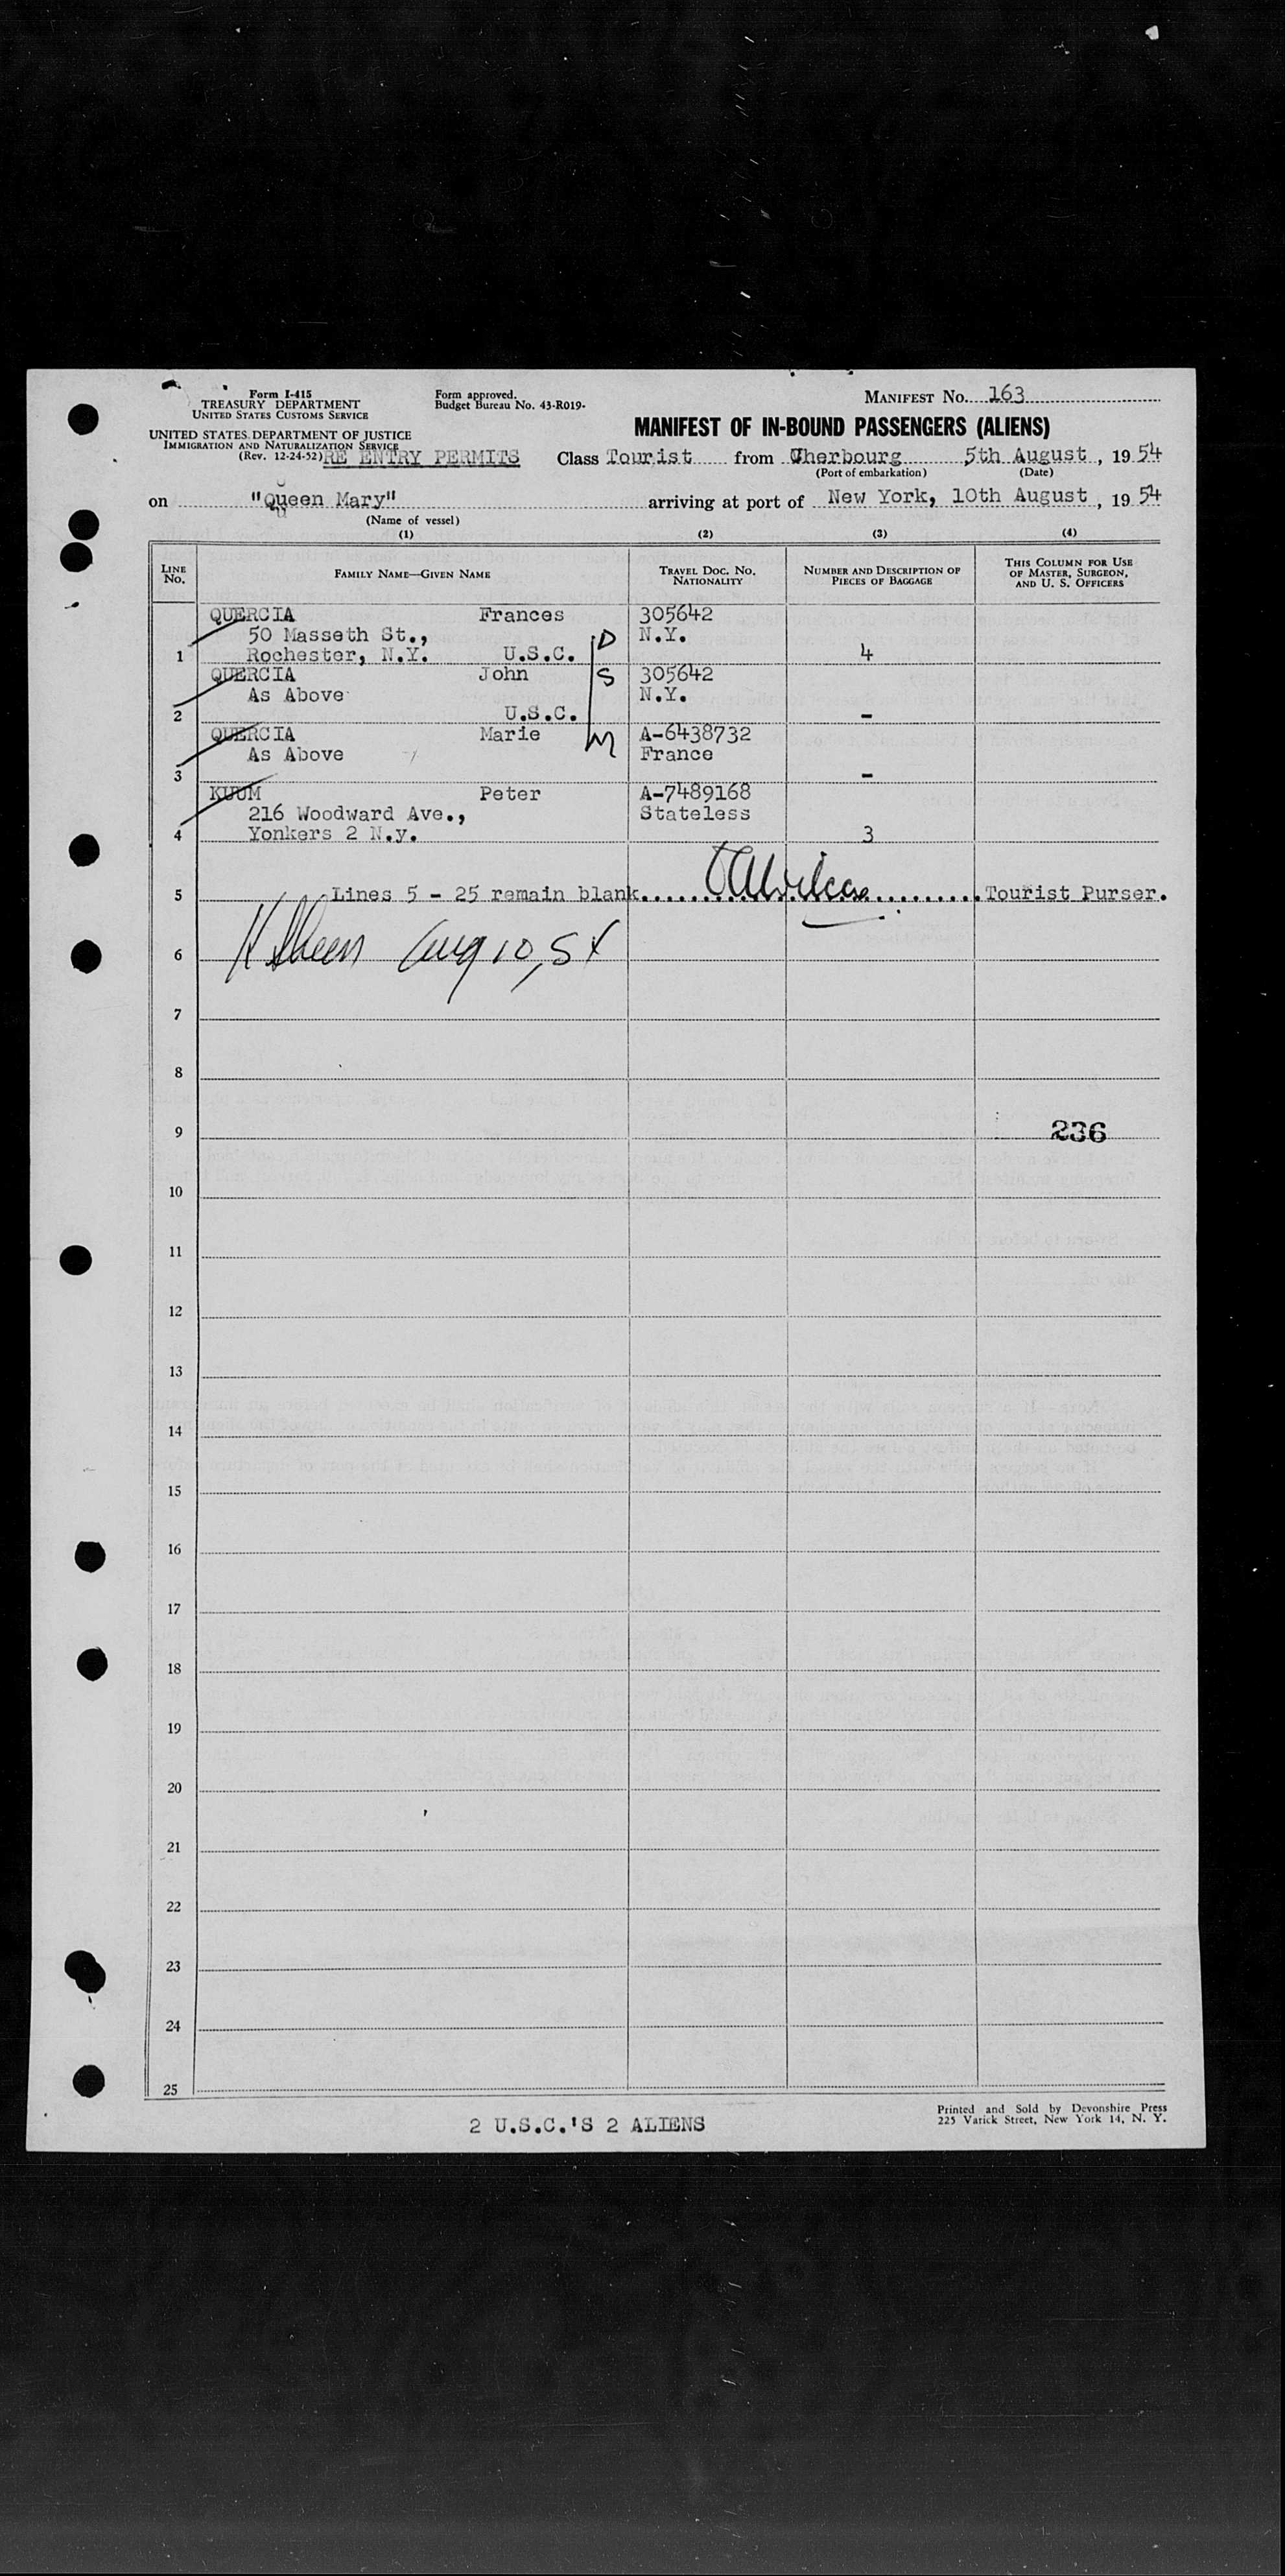 Form I-415
TREASURY DEPARTMENT
UNITED STATES CUSTOMS SERVICE
Form approved.
Budget Bureau No. 43-R019-
MANIFEST NO. 163
UNITED STATES DEPARTMENT OF JUSTICE
IMMIGRATION AND NATURALIZATION SERVICE
(Rev. 12-24-52) RE ENTRY PERMITS
MANIFEST OF IN-BOUND PASSENGERS (ALIENS)
Class Tourist from Cherbourg 5th August, 19 54
(Port of embarkation) (Date)
on "Queen Mary" arriving at port of New York, 10th August, 19 54
(Name of vessel)
(1) (2) (3) (4)
LINE NO. FAMILY NAME—GIVEN NAME TRAVEL DOC. NO. NATIONALITY NUMBER AND DESCRIPTION OF PIECES OF BAGGAGE THIS COLUMN FOR USE OF MASTER, SURGEON, AND U. S. OFFICERS
QUERCIA Frances 305642
50 Masseth St., D N.Y.
1 Rochester, N.Y. U.S.C. 4
QUERCIA John S 305642
As Above N.Y.
2 U.S.C. -
QUERCIA Marie M A-6438732
As Above France
3 -
KUUM Peter A-7489168
216 Woodward Ave., Stateless
4 Yonkers 2 N.y. 3
5 Lines 5 - 25 remain blank. Tourist Purser.
6 Aug 10, 54
7
8
9 236
10
11
12
13
14
15
16
17
18
19
20
21
22
23
24
25
2 U.S.C.'S 2 ALIENS
Printed and Sold by Devonshire Press
225 Varick Street, New York 14, N. Y.